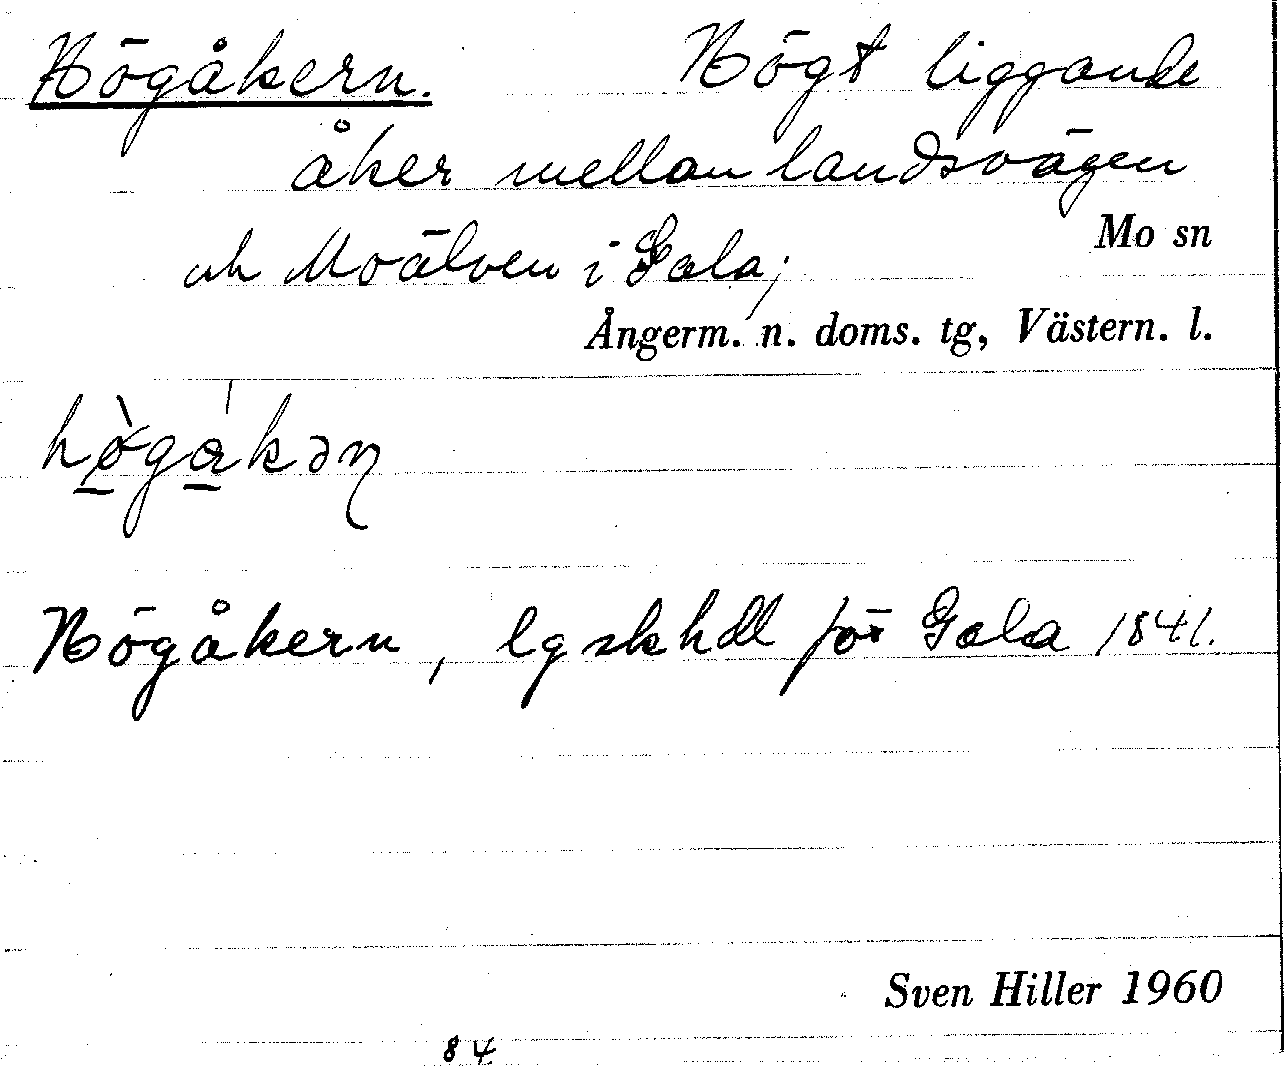 Högåkern. Högt liggande
åker mellan landsvägen
Mo sn
och Moälven i Gala;
Ångerm. n. doms. tg, Västern. l.
Högåkern, lgskhdl för Gala 1841.
Sven Hiller 1960
84